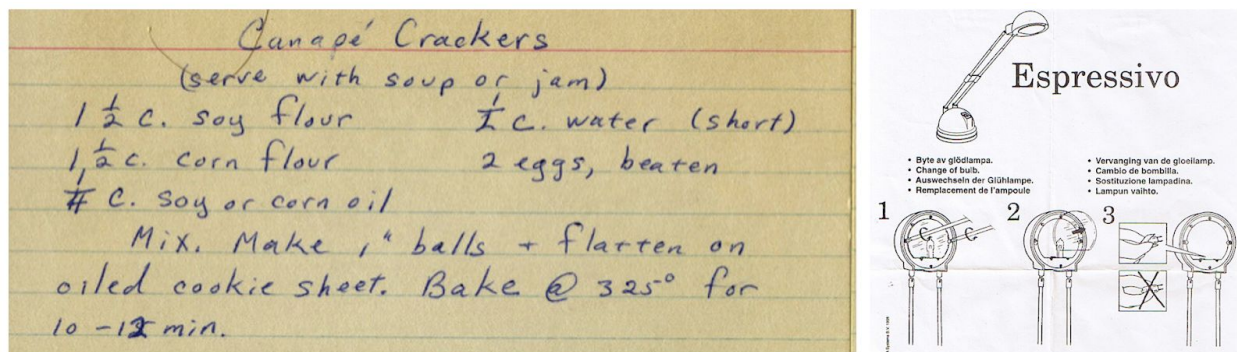 Canapé Crackers
(serve with soup or jam)
1 1/2 c. soy flour
1 1/2 c. corn flour
1/4 c. soy or corn oil
c. water (short)
2 eggs, beaten
Mix. Make 1" balls + flatten on
oiled cookie sheet. Bake @ 325° for
10-12 min.
Espressivo
• Byte av glödlampa.
• Change of bulb.
• Auswechseln der Glühlampe.
• Remplacement de l'ampoule
• Vervanging van de gloeilamp.
• Cambio de bombilla.
• Sostituzione lampadina.
• Lampun vaihto.
1
2
3